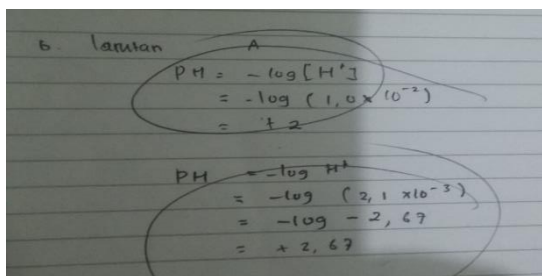 6. larutan A
PH = -log [H⁺]
= -log (1,0 x 10⁻²)
= +2
PH = -log H⁺
= -log (2,1 x10⁻³)
= -log - 2,67
= + 2,67